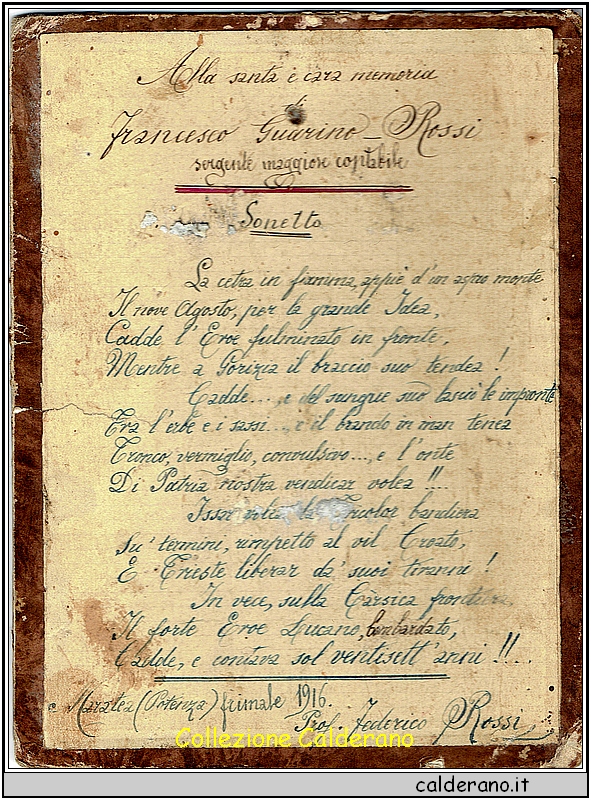 Alla santa e cara memoria
di
Francesco Guarino-Rossi
sergente maggiore contabile
Sonetto
La cetra in fiamma, appiè d'un aspro monte
Il nove Agosto, per la grande Idea,
Cadde l'Eroe fulminato in fronte,
Mentre a Gorizia il braccio suo tendea!
Cadde..., e del sangue suo lasciò le impronte
Tra l'erbe e i sassi..., e il brando in man tenea
Tronco, vermiglio, convulsivo..., e l'onte
Di Patria nostra vendicar volea!!...
Issar la Tricolor bandiera
Su' termini, rimpetto al vil Croato,
E Trieste liberar da' suoi tiranni!
In vece, sulla Carsica
Il forte Eroe Lucano, bombardato,
Cadde, e contava sol ventisett'anni!!...
Maratea (Potenza) 1916.
Prof. Federico Rossi
Collezione Calderano
calderano.it